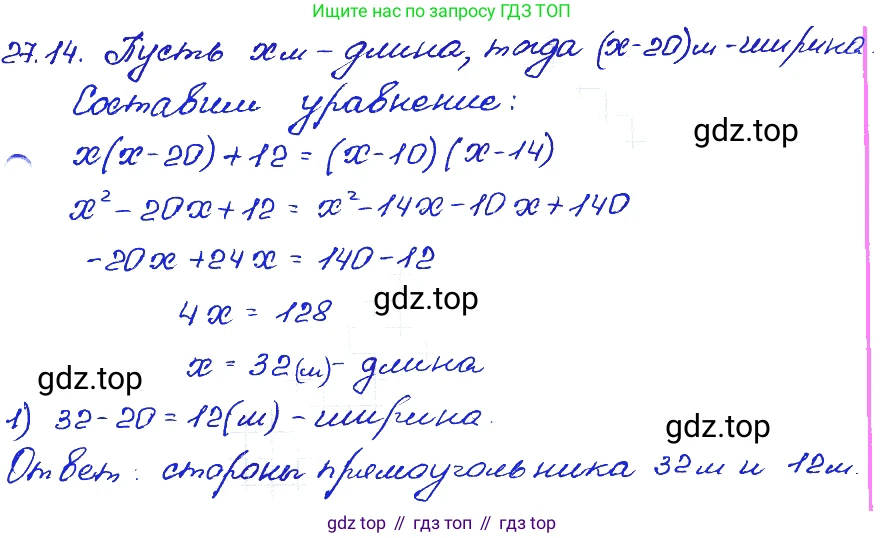 Ищите нас по запросу ГДЗ ТОП
27.14. Пусть x м - длина, тогда (x-20)м - ширина.
Составим уравнение:
gdz.top
x(x-20)+12=(x-10)(x-14)
x²-20x+12=x²-14x-10x+140
-20x+24x=140-12
4x=128
gdz.top
x=32(м)- длина
gdz.top
1) 32-20=12(м) - ширина.
gdz.top
Ответ: стороны прямоугольника 32м и 12м.
gdz top // гдз топ // gdz top